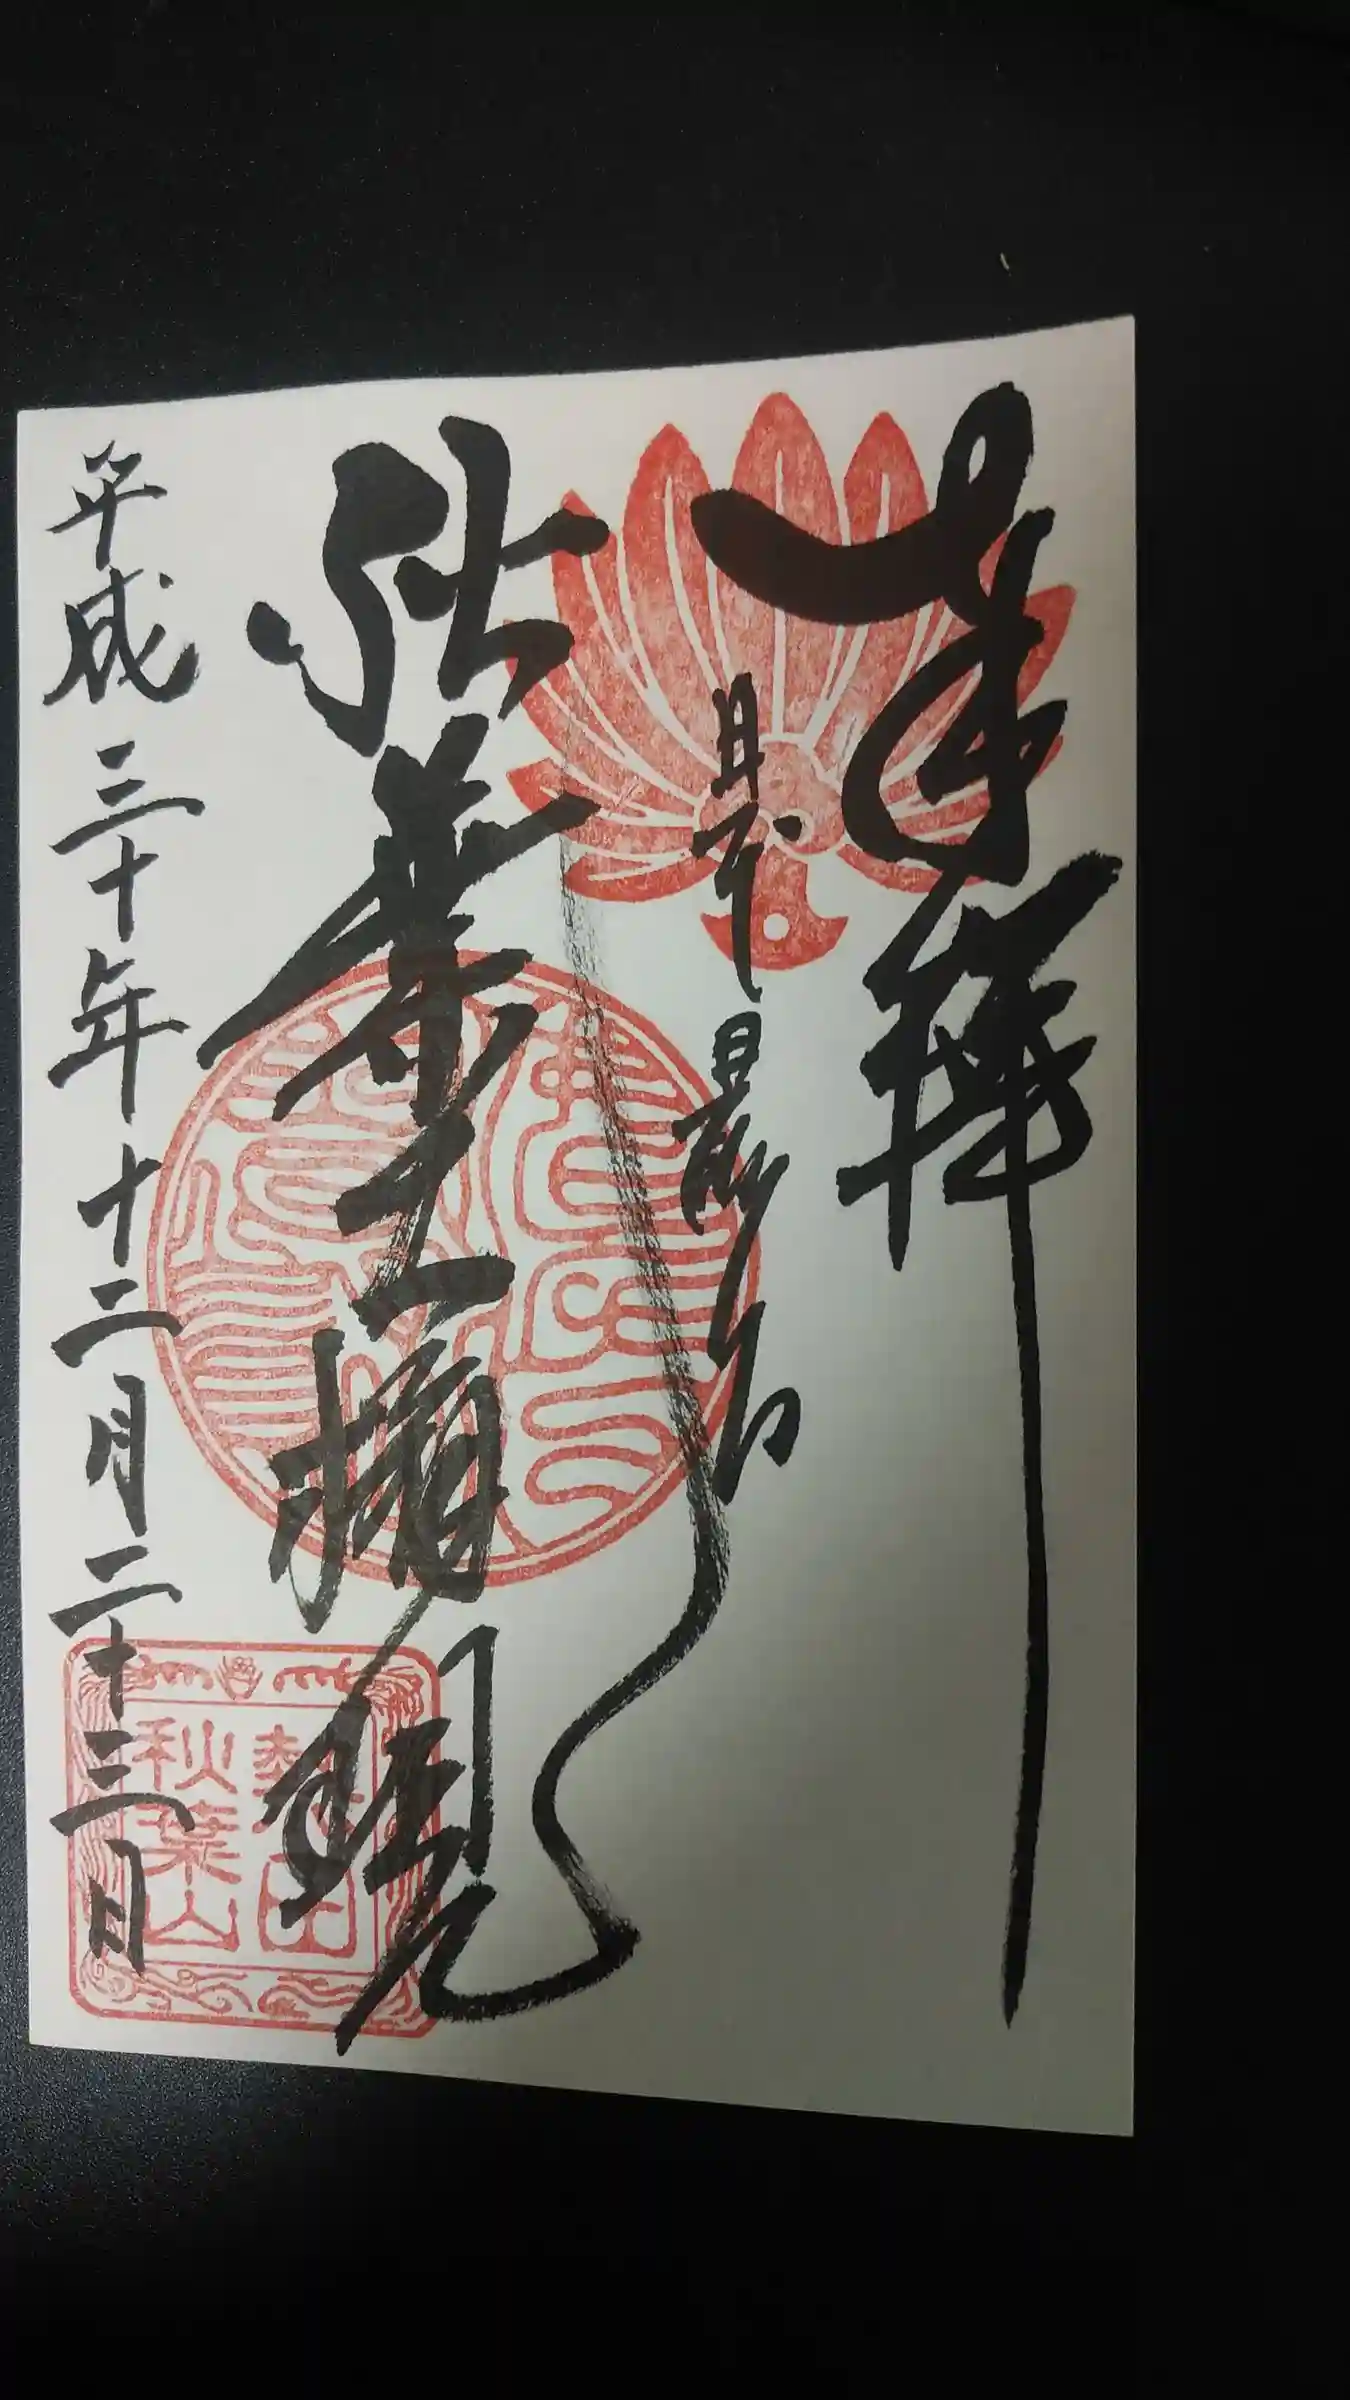 奉拝
日本最初
秋葉大権現
平成三十年十二月二十三日
秋葉山